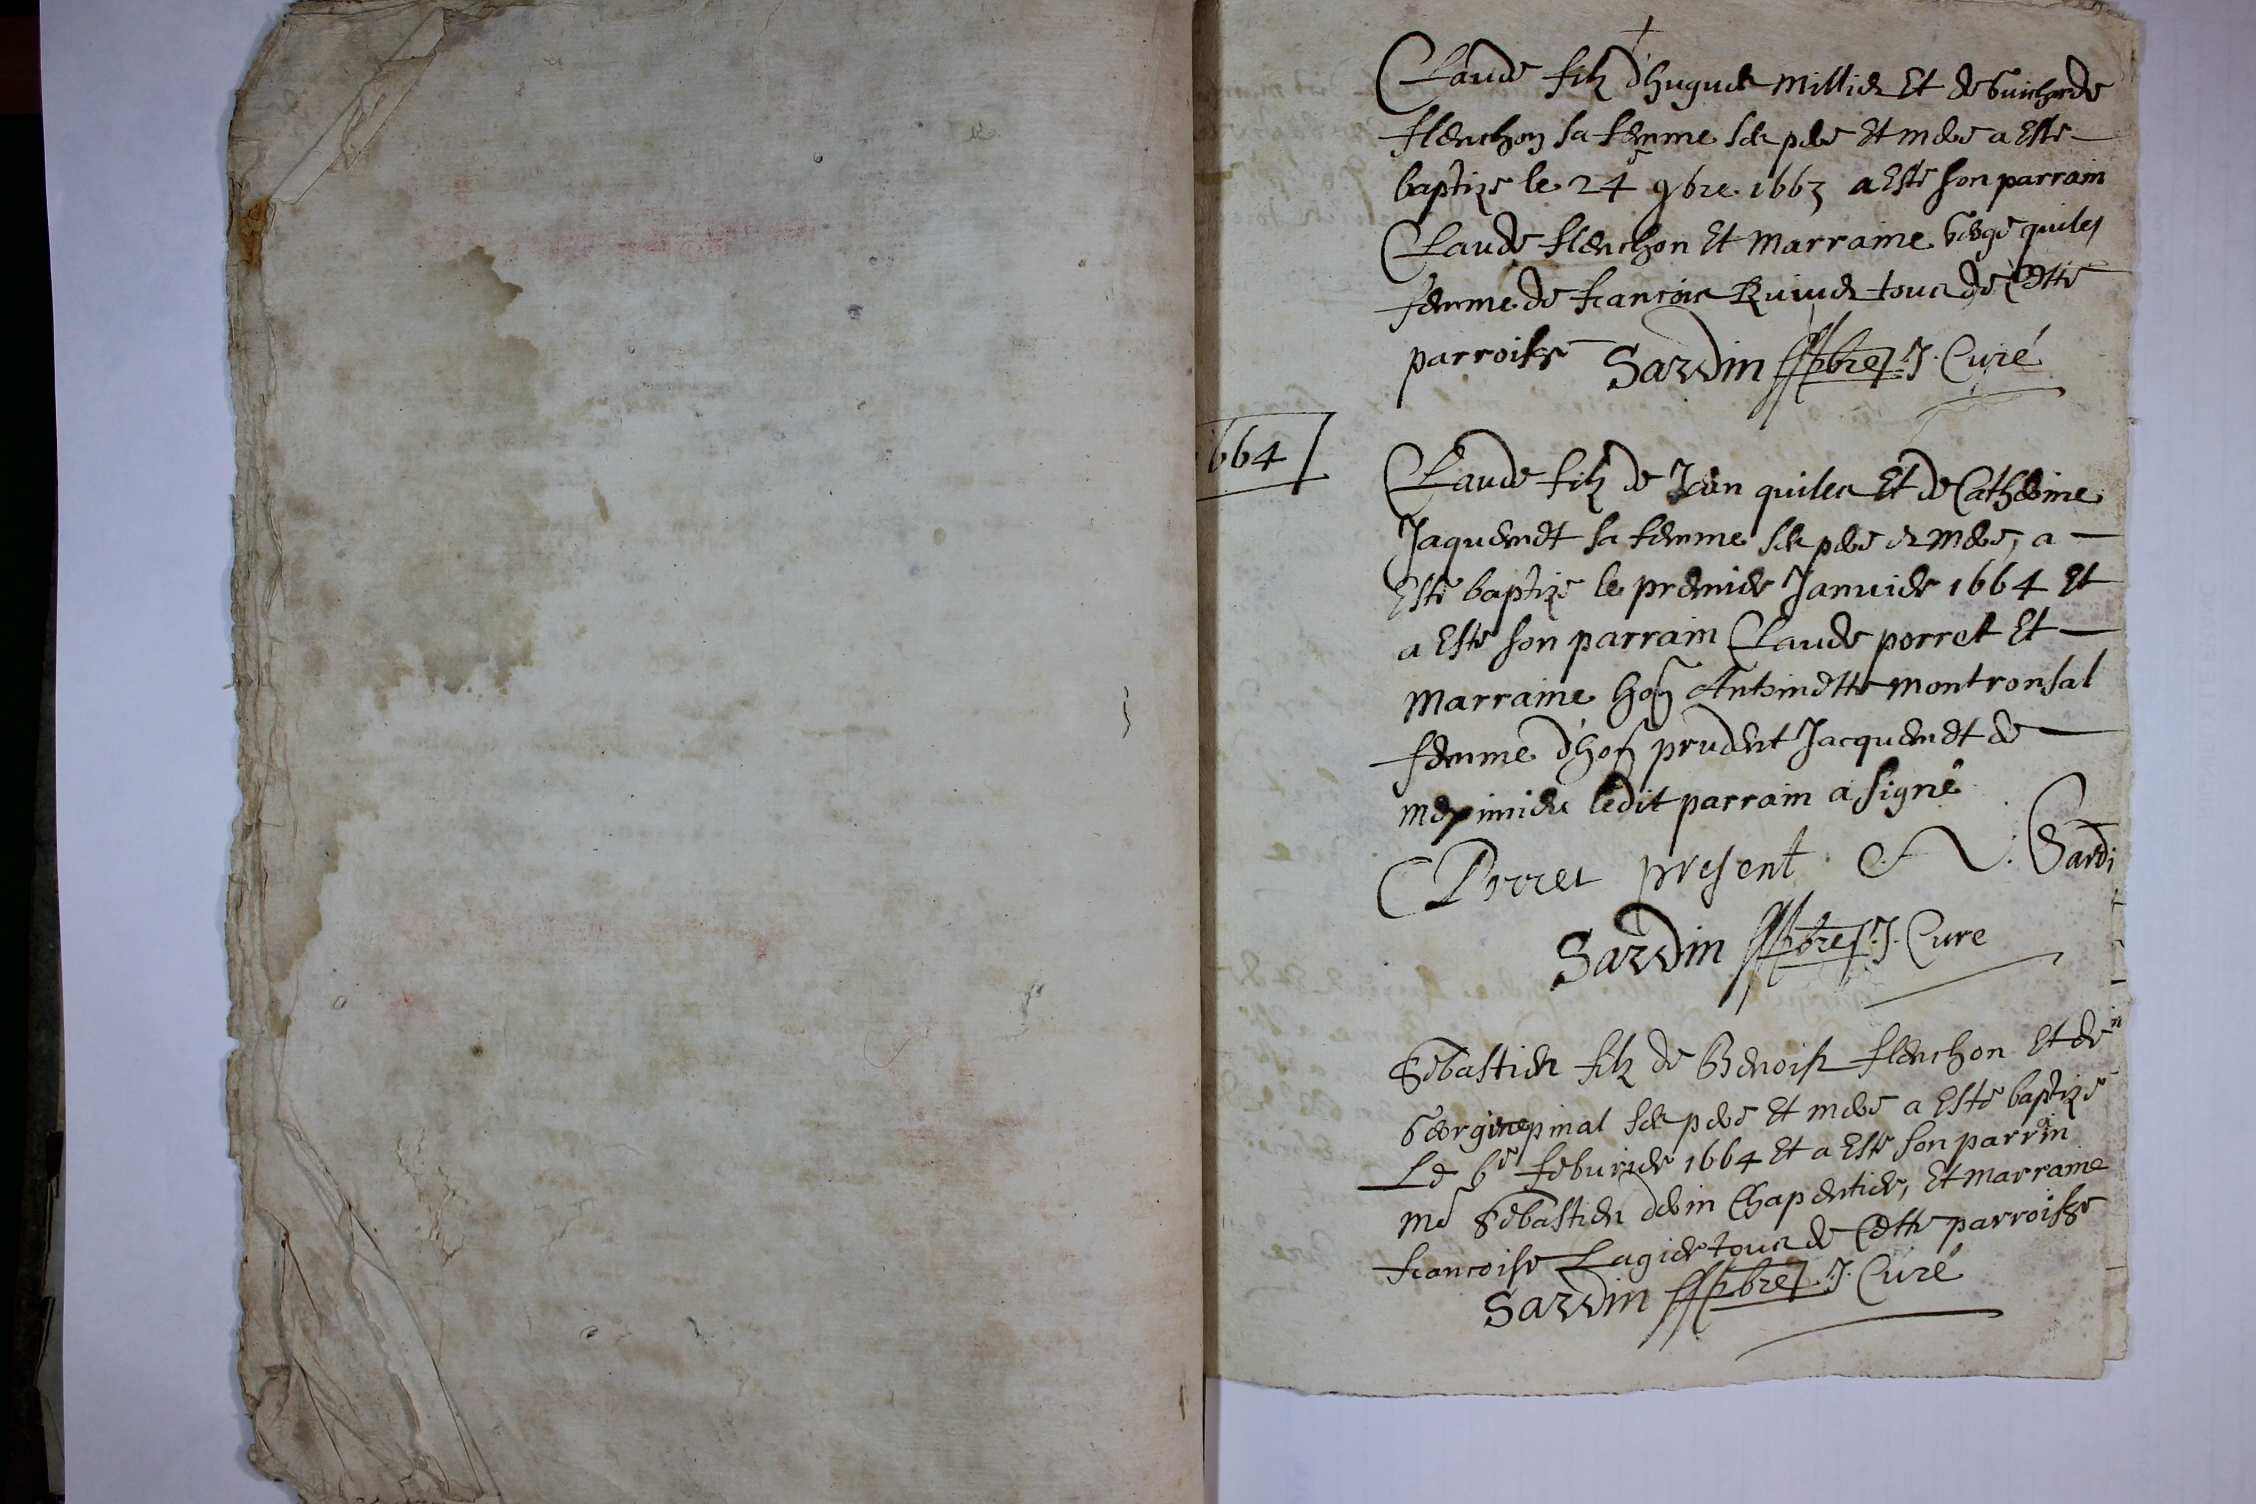 Claude filz d'hugues Millier Et de Guicharde
flenchon sa femme ses pere Et mere a Esté
baptize le 24e 9bre 1663 a Esté son parrain
Claude flenchon Et Marraine George quiles
femme de francois Ruivier tous de Cette
parroisse Sardin pbre J. Curé
1664
Claude filz de Jean quiles Et de Catherine
Jaquemet sa femme ses pere et Mere, a
Esté baptize le premier Januier 1664 Et
a Esté son parrain Claude porret Et
Marraine hon Anthoinette montronsal
femme d'hon prudent Jacquemet de
meximieu ledit parrain a signé
C Porret present Sardi
Sardin pbre J. Cure
Sebastien filz de Benoist flenchon Et de
Georgine pinal ses pere Et mere a Esté baptize
Le 6e feburier 1664 Et a Esté son parrain
Me Sebastien Chapentier, Et Marraine
francoise Lagier tous de Cette parroisse
Sardin pbre J. Curé